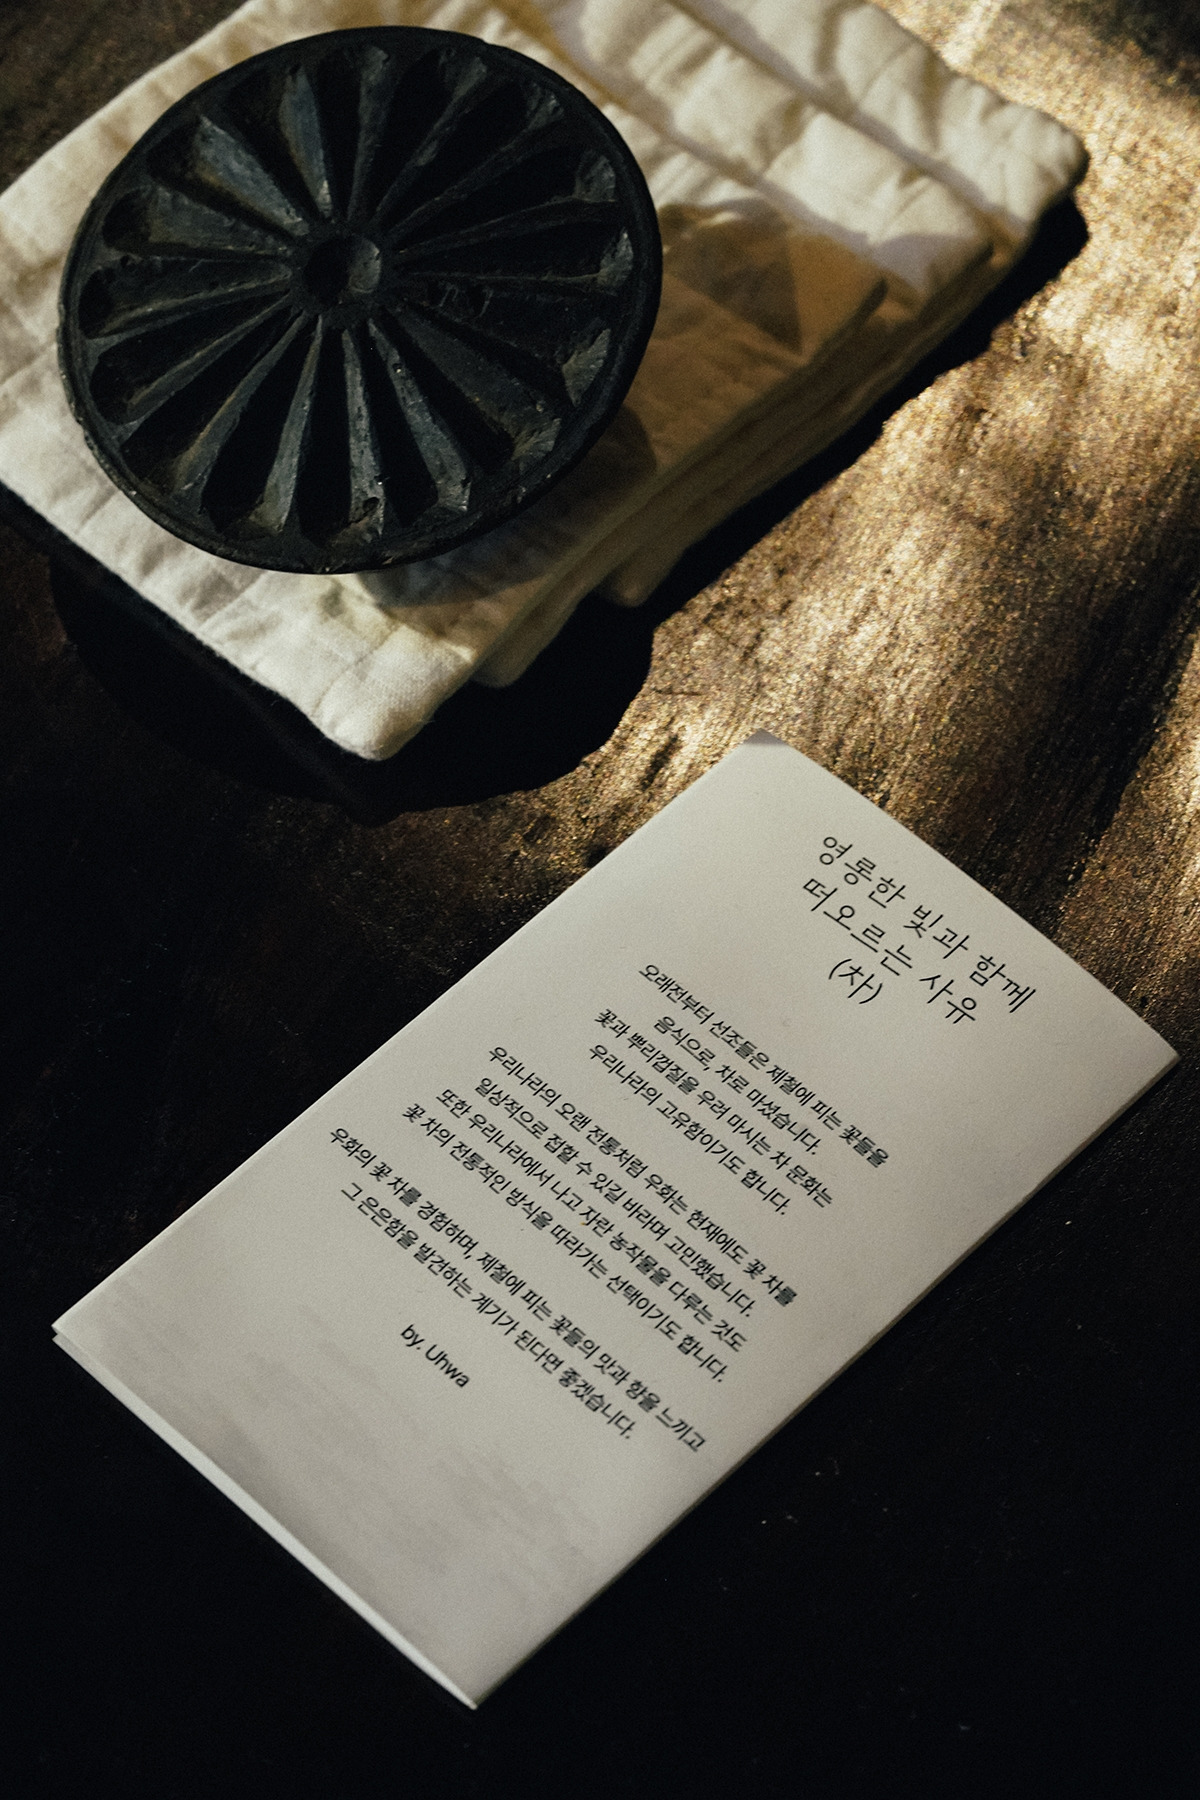 영롱한 빛과 함께
떠오르는 사유
(차)
오래전부터 선조들은 제철에 피는 꽃들을
음식으로, 차로 마셨습니다.
꽃과 뿌리껍질을 우려 마시는 차 문화는
우리나라의 고유함이기도 합니다.
우리나라의 오랜 전통처럼 우화는 현재에도 꽃 차를
일상적으로 접할 수 있길 바라며 고민했습니다.
또한 우리나라에서 나고 자란 농작물을 다루는 것도
꽃 차의 전통적인 방식을 따라가는 선택이기도 합니다.
우화의 꽃 차를 경험하며, 제철에 피는 꽃들의 맛과 향을 느끼고
그 은은함을 발견하는 계기가 된다면 좋겠습니다.
by. Uhwa